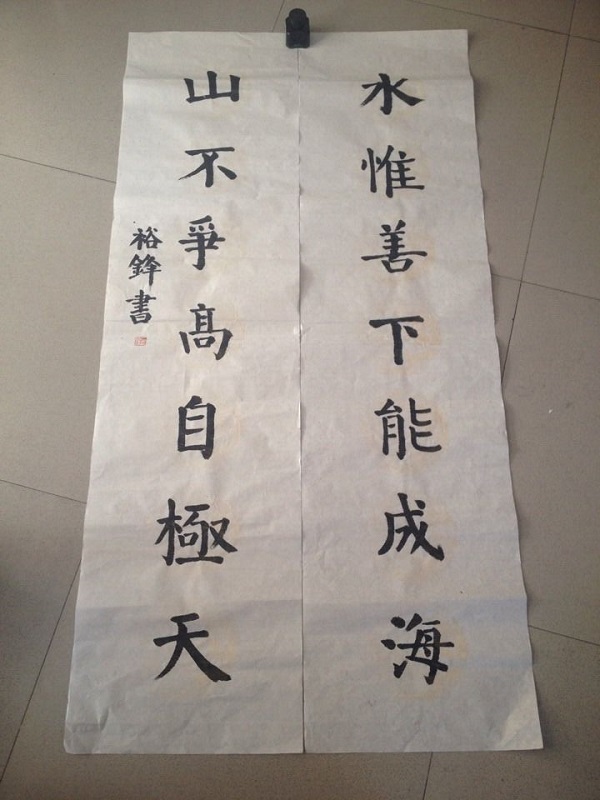 水惟善下能成海
山不爭髙自極天
裕鋒書